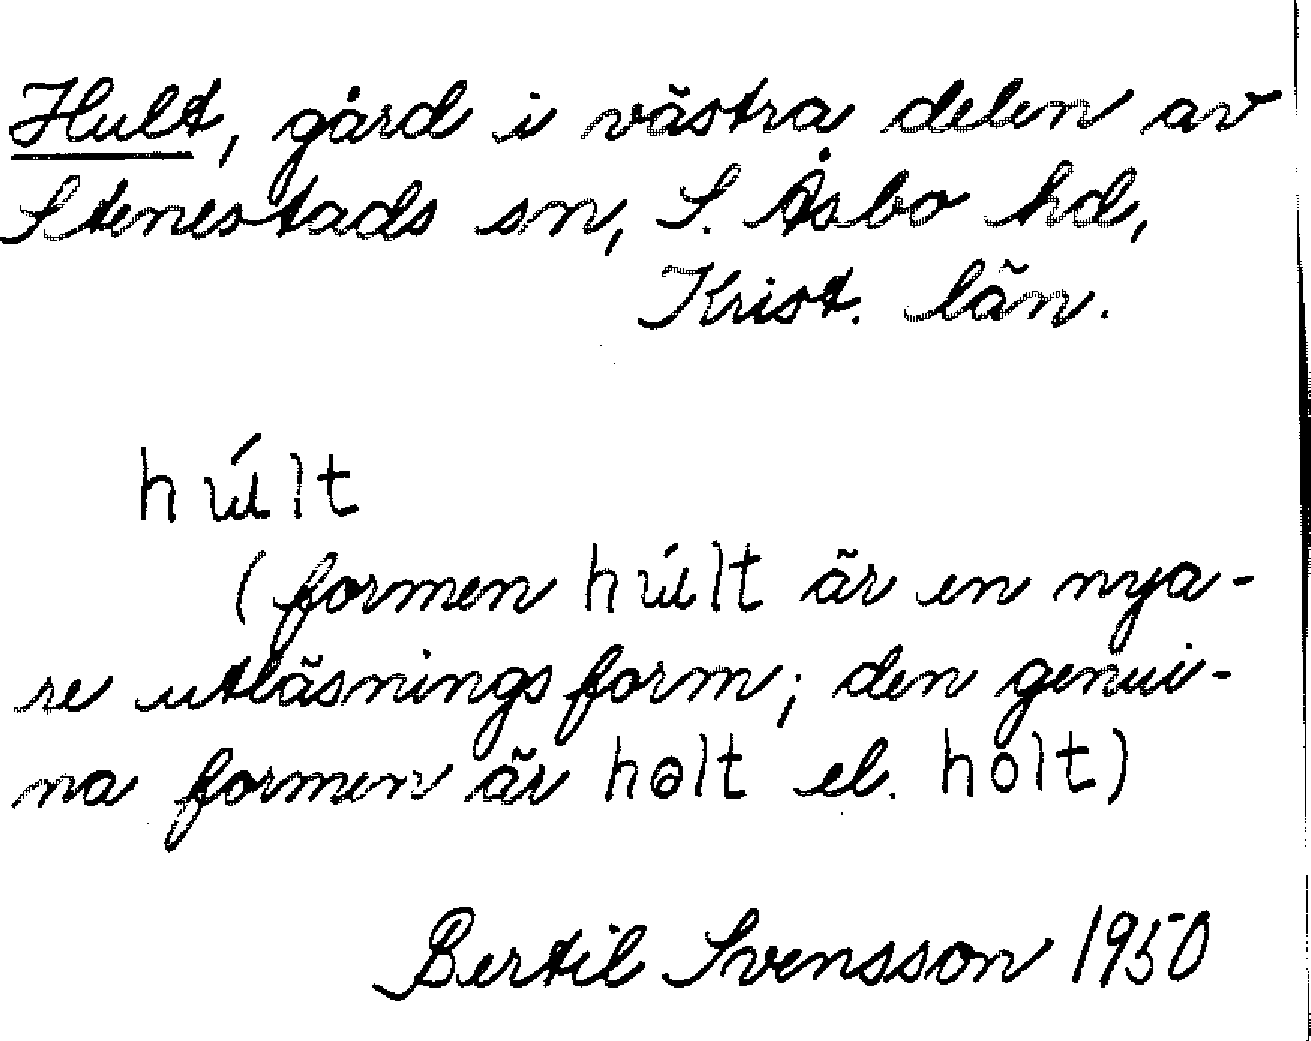 Hult, gård i västra delen av
Stenestads sn, S. Åsbo hd,
Krist. län.
húlt
(formen húlt är en nya-
re utläsningsform; den genui-
na formen är hɵlt el. hólt)
Bertil Svensson 1950